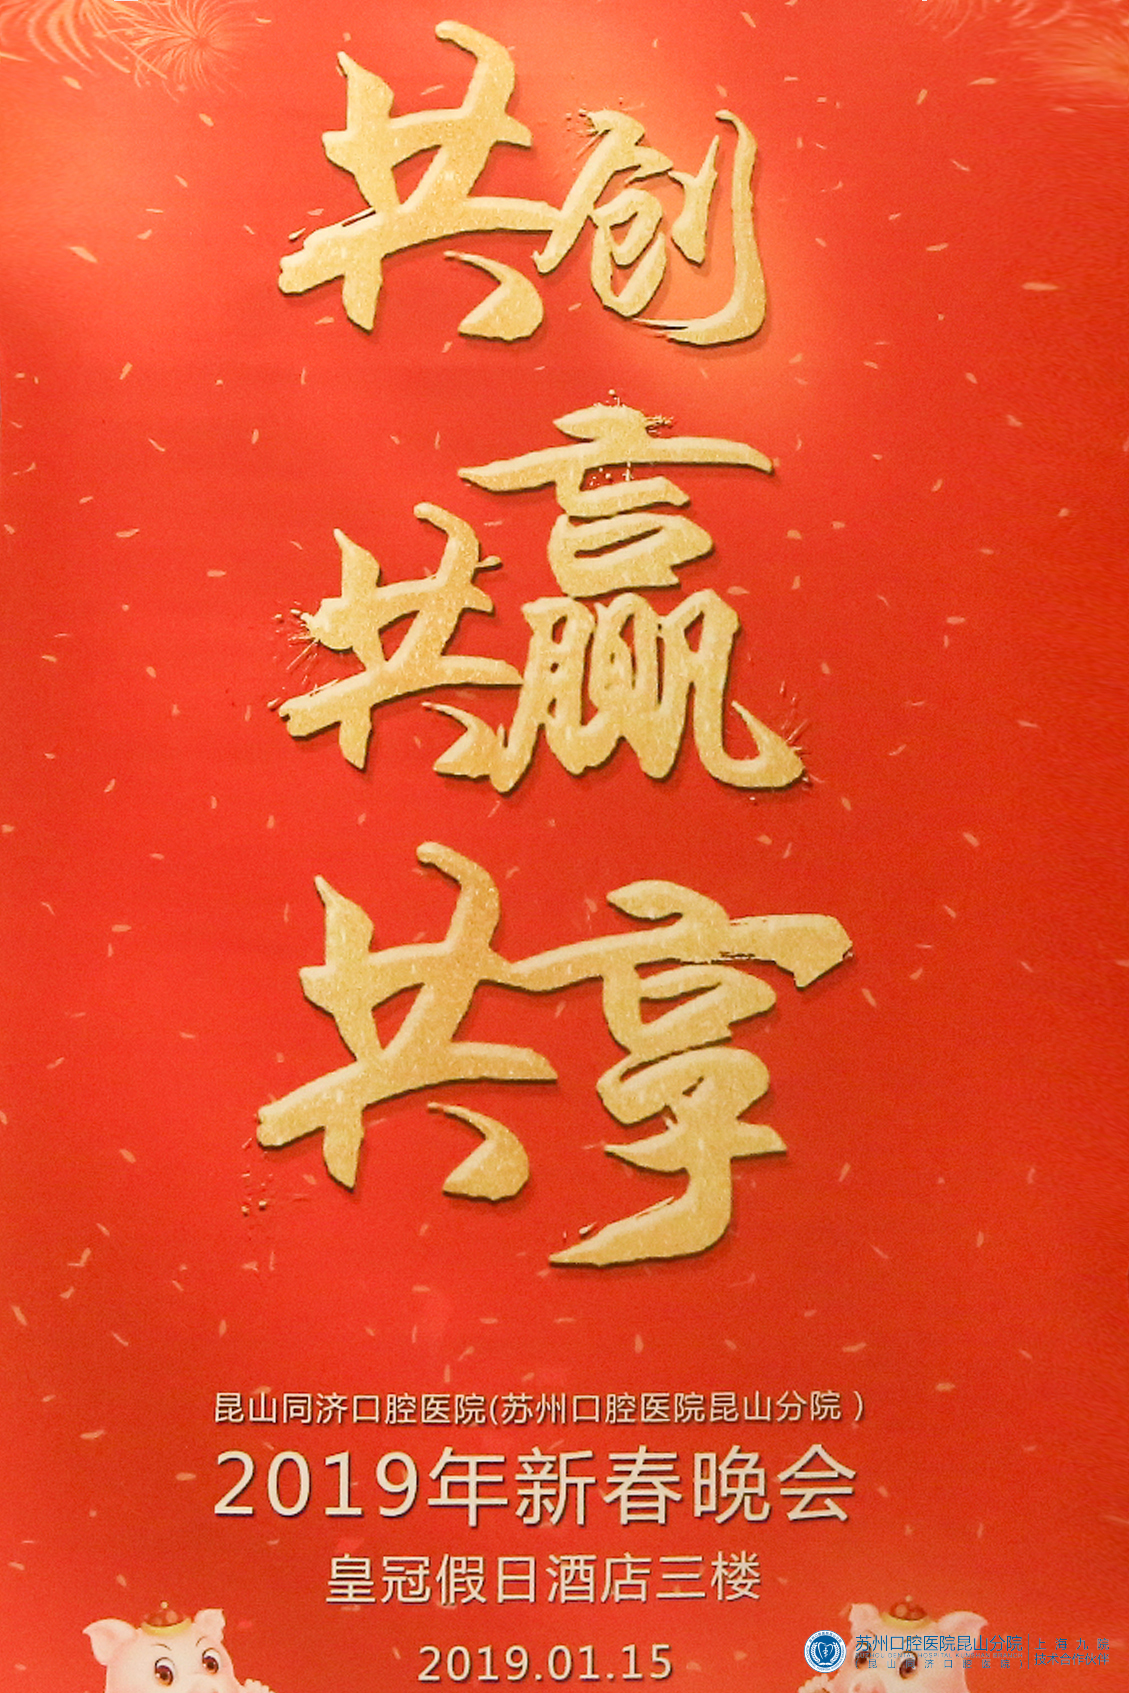 共创
共赢
共享
昆山同济口腔医院(苏州口腔医院昆山分院)
2019年新春晚会
皇冠假日酒店三楼
2019.01.15
苏州口腔医院昆山分院
昆山同济口腔医院
上海九院
技术合作伙伴